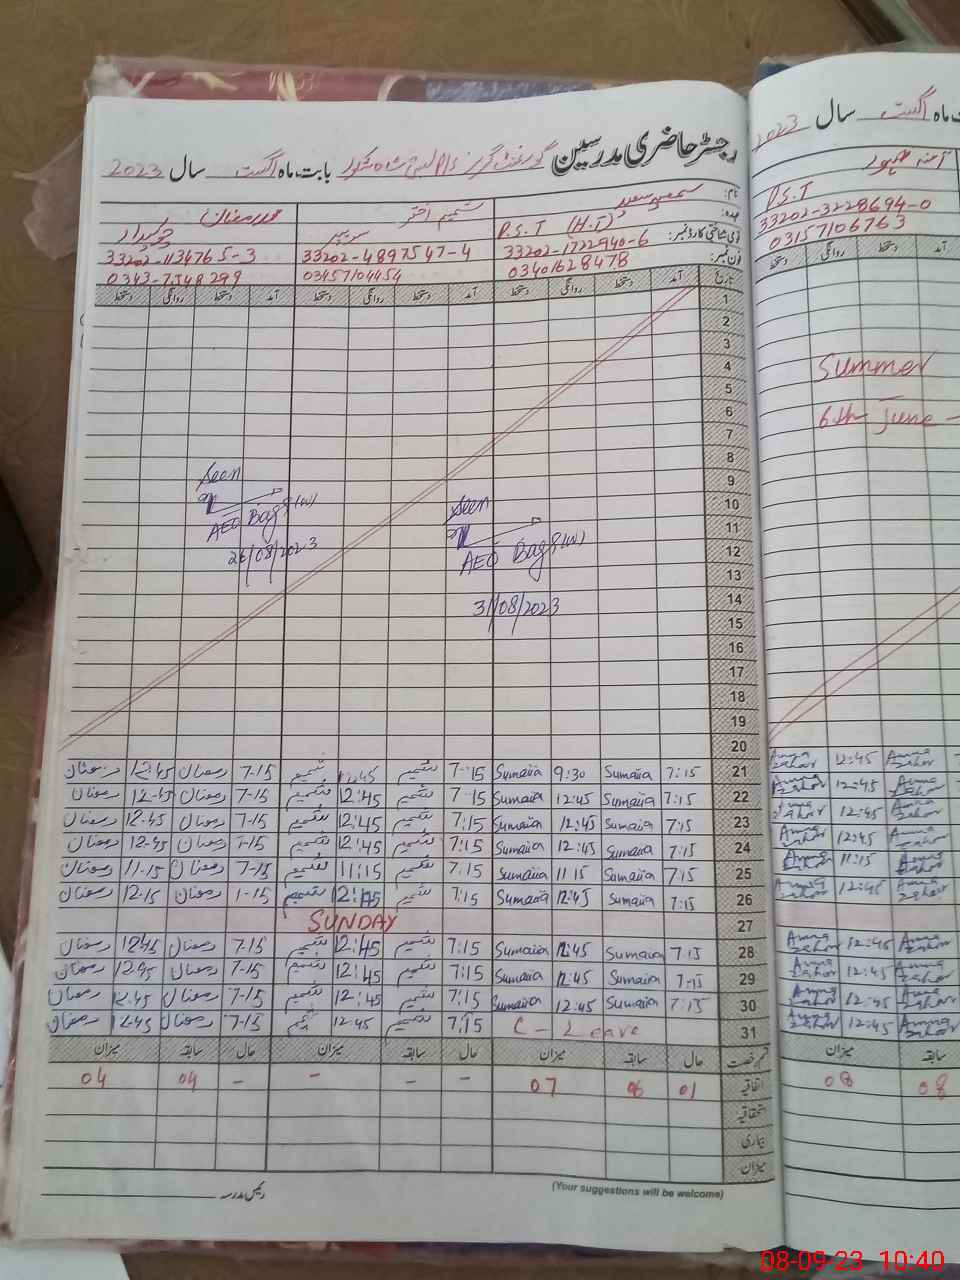 رجسٹر حاضری مدرسین گورنمنٹ گرلز بابت ماہ اگست سال 2023
نام: سمعیہ سعید شمیم اختر محمد رمضان
عہدہ: P.S.T (H.T) سویپر چوکیدار
قومی شناختی کارڈ نمبر: 33202-1722940-6 33202-4897547-4 33202-1134765-3
فون نمبر: 03401628478 03457104454 0343-7548299
تاریخ آمد دستخط روانگی دستخط آمد دستخط روانگی دستخط آمد دستخط روانگی دستخط
1
2
3
4
5
6
7
8
9
10
11
12
13
14
15
16
17
18
19
20
Seen
AEO Bagg (W)
26/08/2023
Seen
AEO Bagg (W)
31/08/2023
21 7:15 Sumaiia 9:30 Sumaiia 7:15 شمیم 12:45 شمیم 7-15 رمضان 12:45 رمضان
22 7:15 Sumaiia 12:45 Sumaiia 7:15 شمیم 12:45 شمیم 7-15 رمضان 12-45 رمضان
23 7:15 Sumaiia 12:45 Sumaiia 7:15 شمیم 12:45 شمیم 7-15 رمضان 12-45 رمضان
24 7:15 Sumaiia 12:45 Sumaiia 7:15 شمیم 12:45 شمیم 7-15 رمضان 12-45 رمضان
25 7:15 Sumaiia 11:15 Sumaiia 7:15 شمیم 11:15 شمیم 7-15 رمضان 11-15 رمضان
26 7:15 Sumaiia 12:45 Sumaiia 7:15 شمیم 12:45 شمیم رمضان رمضان
27 SUNDAY
28 7:15 Sumaiia 12:45 Sumaiia 7:15 شمیم 12:45 شمیم 7-15 رمضان 12:45 رمضان
29 7-15 Sumaiia 12:45 Sumaiia 7:15 شمیم 12:45 شمیم 7-15 رمضان 12:45 رمضان
30 7:15 Sumaiia 12:45 Sumaiia 7:15 شمیم 12:45 شمیم 7-15 رمضان 12:45 رمضان
31 C-Leave 7:15 شمیم 12:45 شمیم 7-15 رمضان 12-45 رمضان
قسم رخصت حال سابقہ میزان حال سابقہ میزان حال سابقہ میزان
اتفاقیہ 01 06 07 - - - - 04 04
استحقاقیہ
بیماری
میزان
(Your suggestions will be welcome)
رئیس مدرسہ
بابت ماہ اگست سال 2023
آمنہ ظہور
P.S.T
33202-3228694-0
03157106763
دستخط روانگی دستخط
Summer
6th June -
Amna Zahor 12:45 Amna Zahor
Amna Zahor 12:45 Amna Zahor
Amna Zahor 12:45 Amna Zahor
Amna Zahor 12:45 Amna Zahor
Amna Zahor 11:15 Amna Zahor
Amna Zahor 12:45 Amna Zahor
Amna Zahor 12:45 Amna Zahor
Amna Zahor 12:45 Amna Zahor
Amna Zahor 12:45 Amna Zahor
Amna Zahor 12:45 Amna Zahor
سابقہ میزان
08 08
08-09-23 10:40